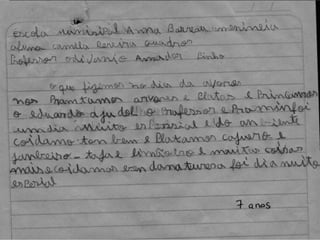 escola municipal Anna Barreau amenineia
aluna camila Pereira Quadros
Professor odivanso Amador Pinho
o que fizemos no dia da arfore
nos Prantamos arvores e Clatas e Brincamos
o eduardo aju dol o Professor e Pramin foi
um dia muito esPesial e do an biente
coidamo ten bem e Platamos caguero e
janbeiro - tafal limoeiro e muitas coisas
mais e coidamos ben danaturesa foi dia muito
esPesial
7 anos